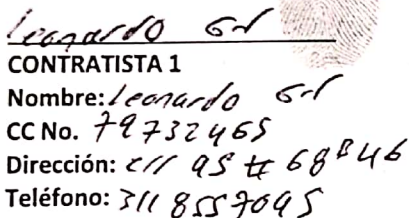 Leonardo Gil
CONTRATISTA 1
Nombre: Leonardo Gil
CC No. 79732465
Dirección: Cll 95 # 68B46
Teléfono: 311 8557095